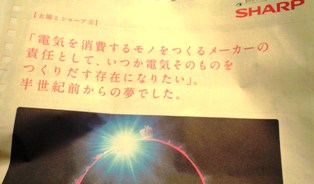 SHARP
【太陽とシャープ①】
「電気を消費するモノをつくるメーカーの
責任として、いつか電気そのものを
つくりだす存在になりたい」。
半世紀前からの夢でした。